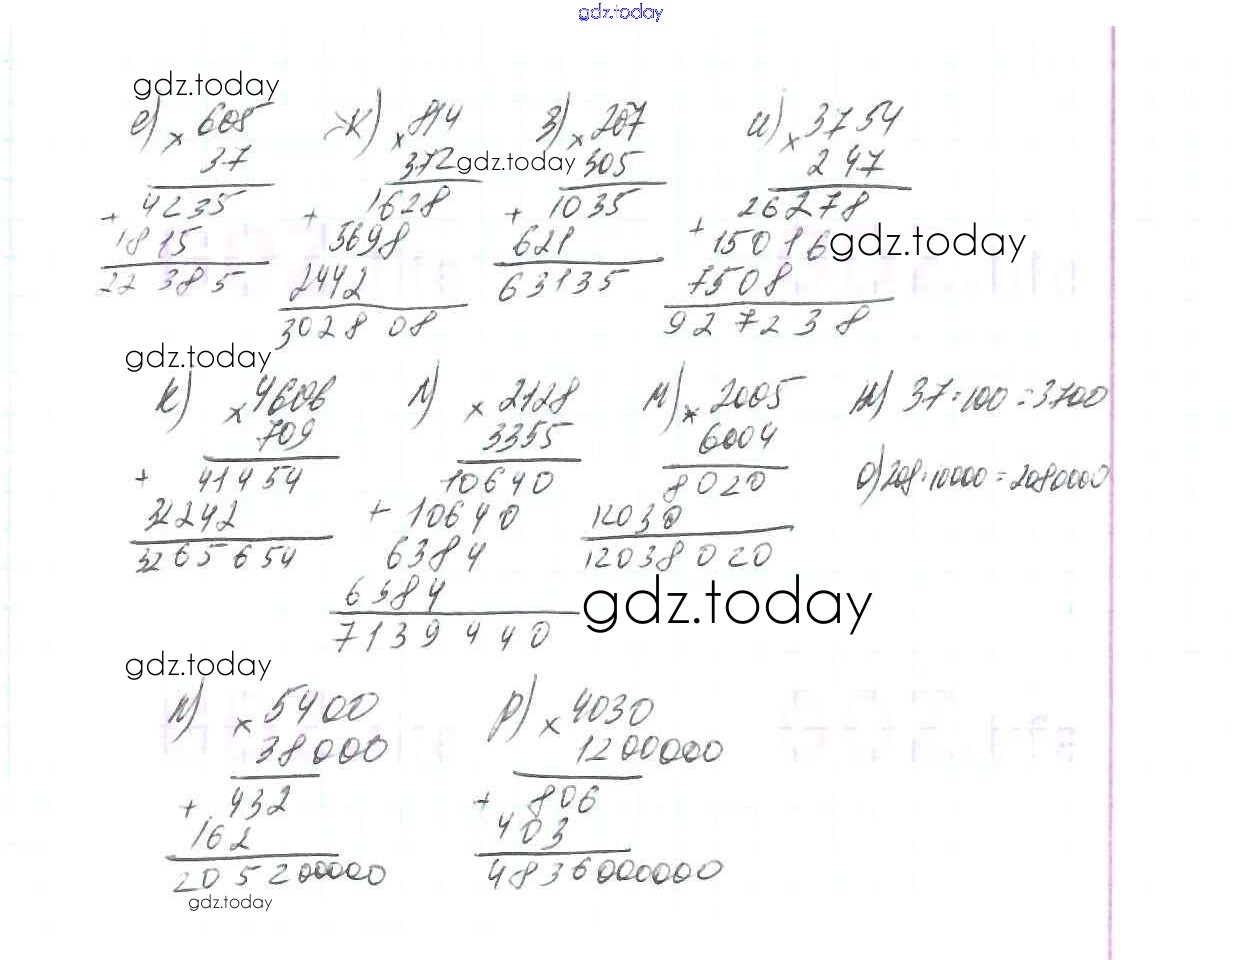 gdz.today
gdz.today
е) × 605 ж) × 814 з) × 207 и) × 3754
37 372 gdz.today 305 247
+ 4235 + 1628 + 1035 + 26278
1815 5698 621 15016 gdz.today
22385 2442 63135 7508
302808 927238
gdz.today
к) × 4606 л) × 2128 м) × 2005 н) 37·100=3700
709 3355 6004
+ 41454 10640 8020 о) 208·10000=2080000
32242 + 10640 12030
3265654 6384 12038020
6384 gdz.today
7139440
gdz.today
п) × 5400 р) × 4030
38000 1200000
+ 432 + 806
162 403
205200000 4836000000
gdz.today